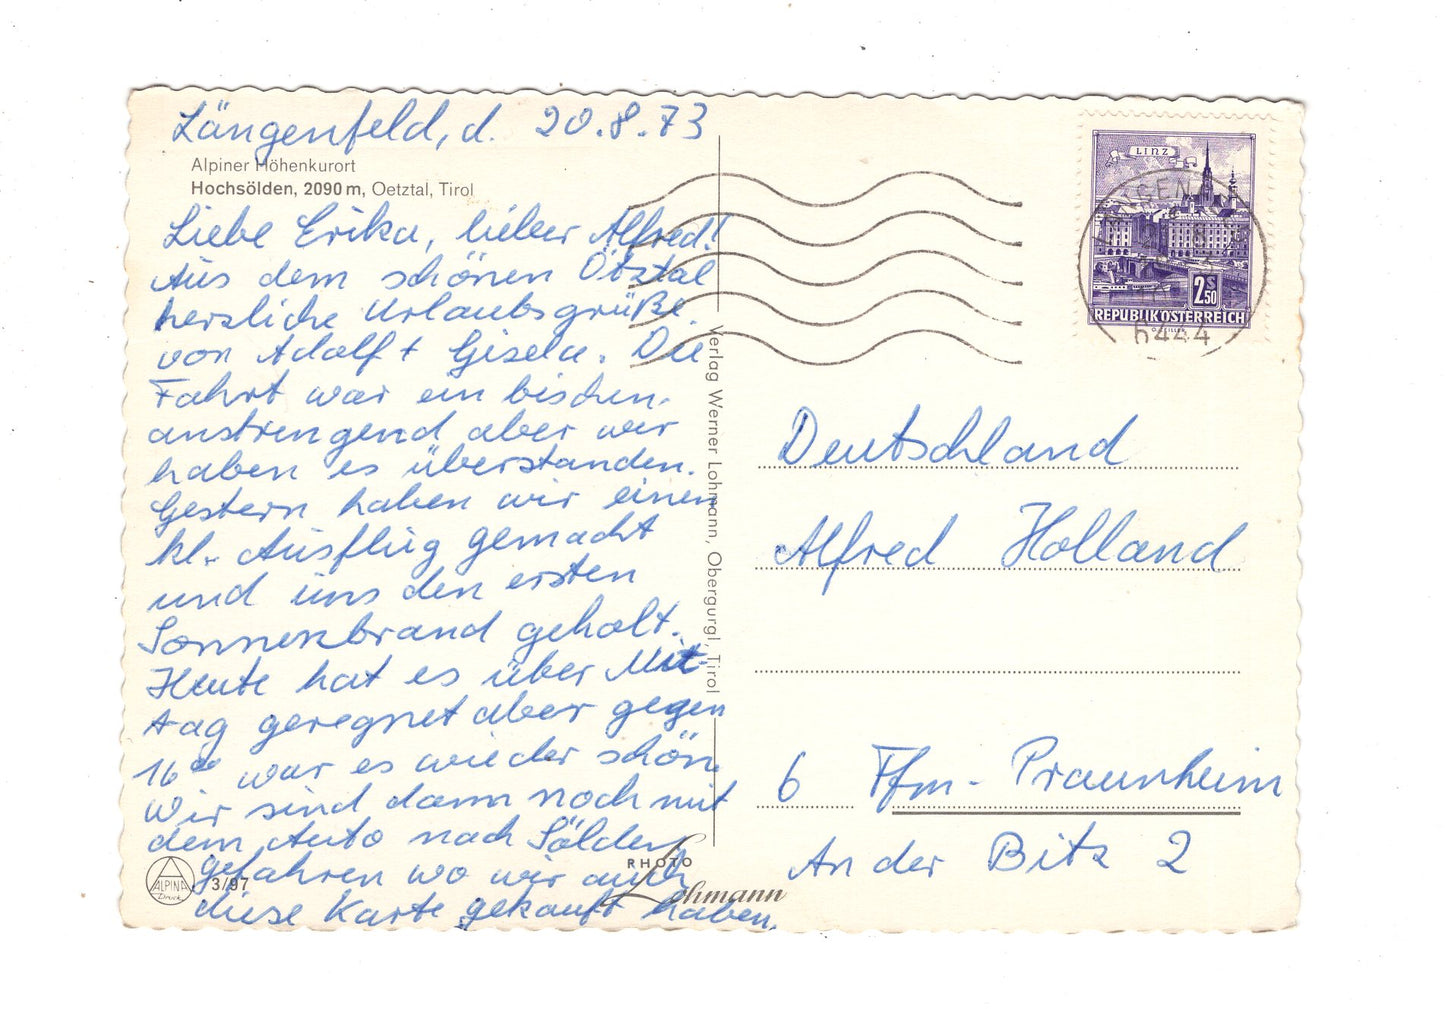 Längenfeld, d. 20.8.73
Alpiner Höhenkurort
Hochsölden, 2090 m, Oetztal, Tirol
Liebe Erika, lieber Alfred!
Aus dem schönen Ötztal
herzliche Urlaubsgrüße
von Adolf + Gisela. Die
Fahrt war ein bischen
anstrengend aber wir
haben es überstanden.
Gestern haben wir einen
kl. Ausflug gemacht
und uns den ersten
Sonnenbrand geholt.
Heute hat es über Mit-
tag geregnet aber gegen
16⁰⁰ war es wieder schön.
Wir sind dann noch mit
dem Auto nach Sölden
gefahren wo wir auch
diese Karte gekauft haben.
ALPINA
Druck
3/97
PHOTO
Lohmann
Verlag Werner Lohmann, Obergurgl, Tirol
LINZ
2S50
REPUBLIK ÖSTERREICH
6444
Deutschland
Alfred Holland
6 Ffm-Praunheim
An der Bitz 2